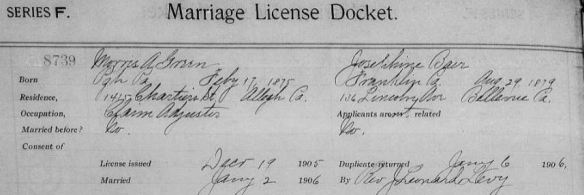 SERIES F. Marriage License Docket.
8739 Morris A Green Josephine Baer
Born Pgh Pa. Feby 17, 1875 Franklin Pa Aug. 29 1879
Residence, Chartiers St, Allegh Co. 136 Lincoln Ave Bellevue Pa.
Occupation, Claim Adjuster Applicants are related
Married before? No. No.
Consent of
License issued Decr 19 1905 Duplicate returned Jany 6 1906,
Married Jany 2 1906 By Rev J Leonard Levy